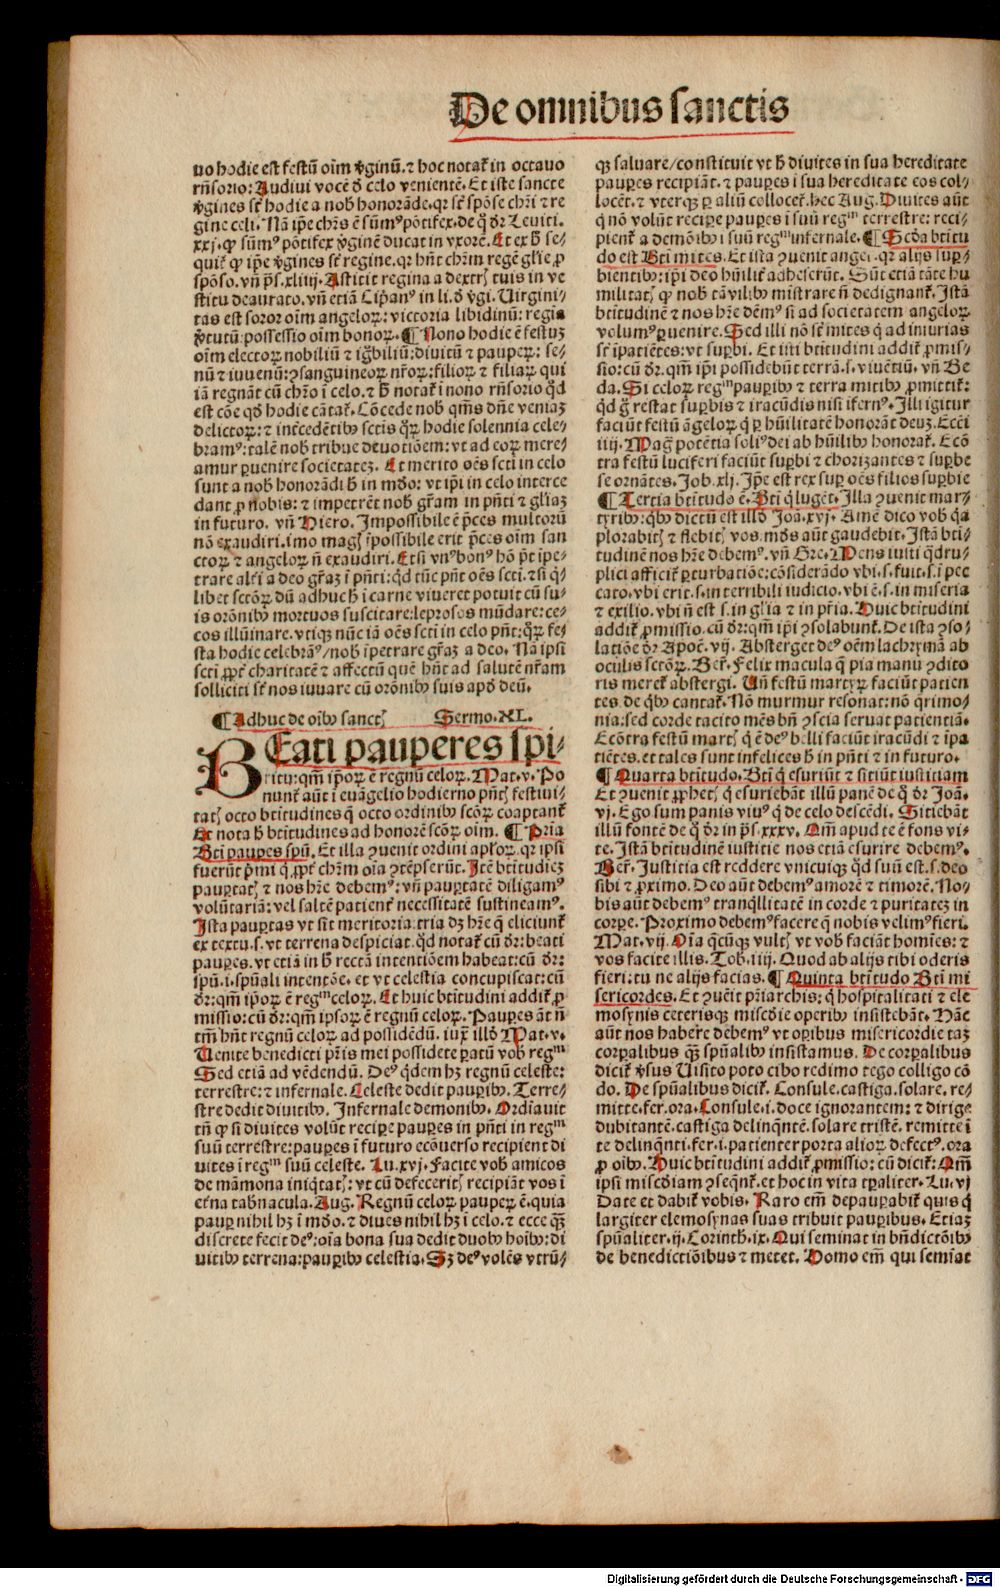 De omnibus sanctis
uo hodie est festū oīm v̄ginū. ⁊ hoc notat̄ in octauo
rn̄sorio: Audiui vocē d̓ celo venientē. Et iste sancte
v̄gines st̄ hodie a nob̄ honorāde. qꝛ st̄ spōse chr̄i ⁊ re
gine celi. Nā ip̄e chr̄s ē sūmꝰ pōtifex. de q̄ dr̄ Leuiti.
xxj. ꝙ sūmꝰ pōtifex v̄ginē ducat in vxorē. Et ex h̄ se-
quit̄ ꝙ ip̄e v̄gines st̄ regine. qꝛ hn̄t chr̄m regē gl̄ie ꝓ
spōso. vn̄ p̄s. xliiij. Astitit regina a dextrꝭ tuis in ve
stitu deaurato. vn̄ etiā Cip̄anꝰ in li. d̓ v̄gi. Uirgini-
tas est soror oīm angeloꝝ: victoria libidinū: regia
v̄tutū: possessio oīm bonoꝝ. ¶ Nono hodie ē festuꝫ
oīm electoꝝ nobiliū ⁊ ig̅biliū: diuitū ⁊ paupeꝝ: se-
nū ⁊ iuuenū: ꝯsanguineoꝝ nr̄oꝝ: filioꝝ ⁊ filiaꝝ qui
iā regnāt cū chr̄o ī celo. ⁊ h̄ notat̄ ī nono rn̄sorio qd̄
est cōe qd̓ hodie cātat̄. Cōcede nob̄ qm̄s dn̄e veniaꝫ
delictoꝝ: ⁊ intēcedētibꝰ sctis qꝝ hodie solennia cele-
bramꝰ: talē nob̄ tribue deuotiōem: vt ad eoꝝ mere-
amur ꝑuenire societateꝫ. Et merito oēs scti in celo
sunt a nob̄ honorādi h̄ in mūdo: vt ip̄i in celo interce
dant ꝓ nobis: ⁊ impetrēt nob̄ gr̄am in pn̄ti ⁊ gl̄iaꝫ
in futuro. vn̄ Hiero. Impossibile ē p̄ces multorū
nō exaudiri. imo magꝭ īpossibile erit p̄ces oīm san
ctoꝝ ⁊ angeloꝝ n̄ exaudiri. Etsi vnꝰ bonꝰ hō pt̄ īpe-
trare alt̄i a deo gr̄aꝫ ī pn̄ti: qd̓ tūc pn̄t oēs scti. ⁊ si q̄-
libet sctōꝝ dū adhuc h̄ ī carne viueret potuit cū su-
is orōnibꝰ mortuos suscitare: leprosos mūdare: ce-
cos illūinare. vtiqꝫ nūc iā oēs scti in celo pn̄t: qꝝ fe-
sta hodie celebrāꝰ/ nob̄ īpetrare gr̄aꝫ a deo. Nā ipsi
scti ꝓpt̄ charitatē ⁊ affectū quē hn̄t ad salutē nr̄am
solliciti st̄ nos iuuare cū orōnibꝰ suis apd̓ deū.
¶ Adhuc de oībꝰ sanctꝭ Sermo. XL.
BEati pauperes spi-
ritu: qm̄ ip̄oꝝ ē regnū celoꝝ. Mat. v. Po
nunt̄ aūt ī euāgelio hodierno pn̄tꝭ festiui-
tatꝭ octo btitudines q̄ octo ordinibꝰ scōꝝ coaptant̄
Et nota h̄ btitudines ad honorē scōꝝ oīm. ¶ Pria
Bti paupes spū. Et illa ꝯuenit ordini apl̓oꝝ. qꝛ ipsi
fuerūt p̄mi q̄ ꝓpt̄ chr̄m oīa ꝯtēpserūt. Istē btitudieꝫ
paupꝑtatꝭ ⁊ nos hr̄e debemꝰ: vn̄ paupꝑtatē diligamꝰ
volūtariā: vel saltē patient̄ necessitatē sustineamꝰ.
Ista paupꝑtas vt sit meritoria. tria dꝫ hr̄e q̄ eliciunt̄
ex textu. s. vt terrena despiciat. qd̓ notat̄ cū dr̄: beati
paupes. vt etiā in h̄ rectā intentiōem habeat: cū dr̄:
spū. i. spūali intentōe. et vt celestia concupiscat: cū
dr̄: qm̄ ip̄oꝝ ē regm celoꝝ. Et huic btitudini addit̄ ꝓ
missio: cū dr̄: qm̄ ipsoꝝ ē regnū celoꝝ. Paupes āt n̄
tm̄ hn̄t regnū celoꝝ ad possidēdū. iuxͣ illd̓ Mat. v.
Uenite benedicti pr̄is mei possidete paratū vob̄ regm
Sed etiā ad vēdendū. Deꝰ qd̓em hꝫ regnū celeste:
terrestre: ⁊ infernale. Celeste dedit pauꝑibꝰ. Terre-
stre dedit diuitibꝰ. Infernale demonibꝰ. Ordīauit
tn̄ ꝙ si diuites volūt recipe paupes in pn̄ti in regm
suū terrestre: paupes ī futuro ecōuerso recipient di
uites ī regm suū celeste. Lu. xvj. Facite vob̄ amicos
de māmona iniq̄tatꝭ: vt cū defeceritꝭ recipiāt vos ī
et̄na tab̄nacula. Aug. Regnū celoꝝ paupeꝝ ē. quia
paup nihil hꝫ ī mūdo. ⁊ diues nihil hꝫ ī celo. ⁊ ecce qꝫ
discrete fecit deꝰ: oīa bona sua dedit duobꝰ hoībꝰ: di
uitibꝰ terrena: pauꝑibꝰ celestia. Sꝫ deꝰ volēs vtrū-
qꝫ saluare/ constituit vt h̄ diuites in sua hereditate
paupes recipiāt. ⁊ paupes ī sua hereditate eos col-
locēt. ⁊ vterqꝫ ꝑ aliū collocet̄. hec Aug. Diuites aūt
q̄ nō volūt recipe paupes ī suū regm terrestre: reci-
pient̄ a demōibꝰ ī suū regm infernale. ¶ Scd̓a btitu
do est Bti mites. Et ista ꝯuenit angel. qꝛ alijs suꝑ-
bientibꝰ: ip̄i deo hūilit̄ adheserūt. Sūt etiā tāte hu
militatꝭ ꝙ nob̄ tā vilibꝰ ministrare n̄ dedignant̄. Istā
btitudinē ⁊ nos hr̄e dēmꝰ si ad societatem angeloꝝ
volumꝰ ꝑuenire. Sed illi nō st̄ mites q̄ ad iniurias
st̄ īpatiētes: vt suꝑbi. Et isti btitudini addit̄ ꝓmis-
sio: cū dr̄. qm̄ ip̄i possidebūt terrā. s. viuētiū. vn̄ Be
da. Si celoꝝ regm pauꝑibꝰ ⁊ terra mitibꝰ ꝓmittit̄:
qd̓ g̅ restat suꝑbis ⁊ iracūdis nisi īfernꝰ. Illi igitur
faciūt festū āgeloꝝ q̄ ꝑ hūilitatē honorāt deuꝫ. Ecci
iiij. Mag̅ potētia soliꝰ dei ab hūilibꝰ honorat̄. Ecō
tra festū luciferi faciūt suꝑbi ⁊ chorizantes ⁊ suꝑbe
se ornātes. Job. xlj. Ip̄e est rex suꝑ oēs filios suꝑbie
¶ Tertia btitudo ē. Bti q̄ lugēt. Illa ꝯuenit mar-
tyribꝰ: qbꝰ dictū est illd̓ Joā. xvj. Amē dico vob̄ qꝛ
plorabitꝭ ⁊ flebitꝭ vos. mūds aūt gaudebit. Istā bti-
tudinē nos hr̄e debemꝰ. vn̄ Gre. Mens iusti qd̓ru-
plici afficit̄ ꝑturbatiōe: cōsiderādo vbi. s. fuit. s. ī pec
cato. vbi erit. s. in terribili iudicio. vbi ē. s. in miseria
⁊ exilio. vbi n̄ est. s. in gl̄ia ⁊ in pr̄ia. Huic btitudini
addit̄ ꝓmissio. cū dr̄: qm̄ ip̄i ꝯsolabunt̄. De ista ꝯso-
latiōe dr̄ Apoē. vij. Absterget deꝰ oēm lachrymā ab
oculis sctōꝝ. Ber̄. Felix macula q̄ pia manu ꝯdito
ris meret̄ abstergi. Un̄ festū martyꝝ faciūt patien
tes. de qbꝰ cantat̄. Nō murmur resonat: nō qrimo-
nia: sed corde tacito mēs bn̄ ꝯscia seruat patientiā.
Ecōtra festū martꝭ q̄ ē deꝰ belli faciūt iracūdi ⁊ īpa
tiētes. et tales sunt infelices h̄ in pn̄ti ⁊ in futuro.
¶ Quarta btitudo. Bti q̄ esuriūt ⁊ sitiūt iusticiam
Et ꝯuenit ꝓphetꝭ q̄ esuriebāt illū panē de q̄ dr̄ Joā.
vj. Ego sum panis viuꝰ q̄ de celo descēdi. Sitiebāt
illū fontē de q̄ dr̄ in p̄s. xxxv. Qm̄ apud te ē fons vi-
te. Istā btitudinē iustitie nos etiā esurire debemꝰ.
Ber̄. Justitia est reddere vnicuiqꝫ qd̓ suū est. s. deo
sibi ⁊ ꝓximo. Deo aūt debemꝰ amorē ⁊ timorē. No-
bis aūt debemꝰ tranqllitatē in corde ⁊ puritateꝫ in
corpe. Proximo debemꝰ facere q̄ nobis velimꝰ fieri.
Mat. vij. Oīa qcūqꝫ vultꝭ vt vob̄ faciāt homīes: ⁊
vos facite illis. Tob. iiij. Quod ab alijs tibi oderis
fieri: tu ne alijs facias. ¶ Quinta btitudo Bti mi
sericordes. Et ꝯuēit pr̄iarchis: q̄ hospitalitati ⁊ ele
mosynis ceterisqꝫ miscd̓ie operibꝰ insistebāt. Hāc
aūt nos habere debemꝰ vt oꝑibus misericordie taꝫ
corꝑalibus qꝫ spūalibꝰ insistamus. De corꝑalibus
dicit̄ v̓sus Uisito poto cibo redimo tego colligo cō
do. De spūalibus dicit̄. Consule. castiga. solare. re-
mitte. fer. ora. Consule. i. doce ignorantem: ⁊ dirige
dubitantē. castiga delinqntē. solare tristē. remitte ī
te delinqnti. fer. i. patienter porta alioꝝ defectꝰ. ora
ꝓ oībꝰ. Huic btitudini addit̄ ꝓmissio: cū dicit̄: Qm̄
ipsi miscd̓iam ꝯseqnt̄. et hoc in vita tꝑaliter. Lu. vj
Date et dabit̄ vobis. Raro em̄ depauꝑabit̄ quis q̄
largiter elemosynas suas tribuit pauꝑibus. Etiaꝫ
spūaliter. ij. Corinth. ix. Qui seminat in bn̄dictōibꝰ
de benedictiōibus ⁊ metet. Homo em̄ qui semīat
Digitalisierung gefördert durch die Deutsche Forschungsgemeinschaft - DFG